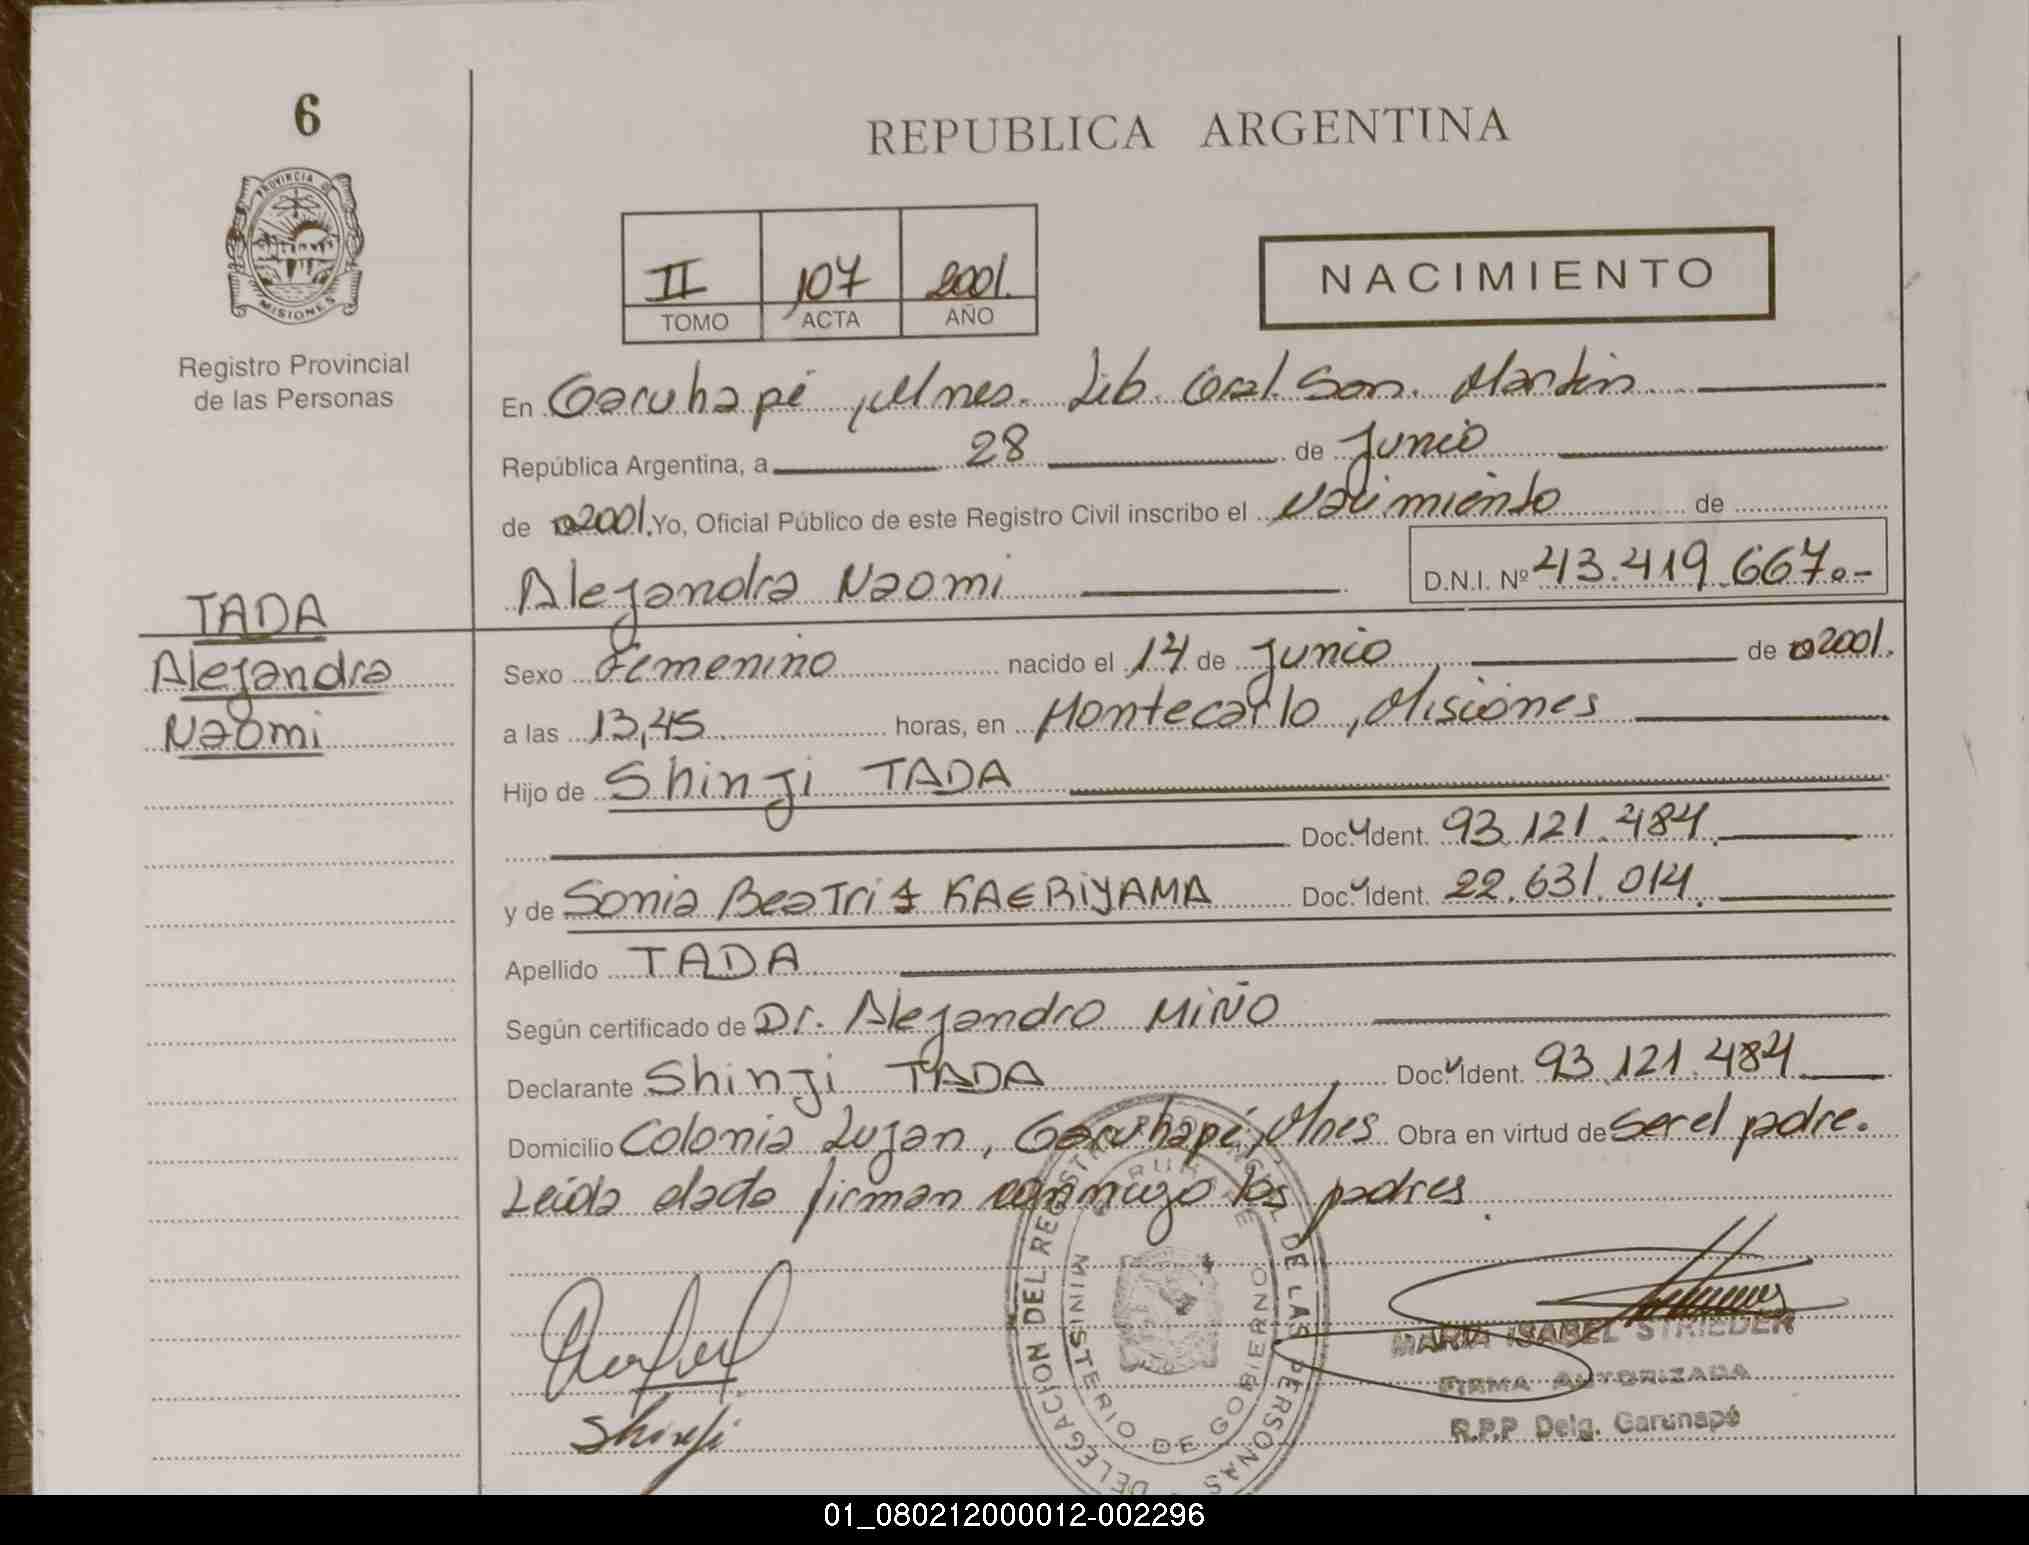 6
PROVINCIA DE
MISIONES
Registro Provincial
de las Personas
TADA
Alejandra
Naomi
REPUBLICA ARGENTINA
II 107 2001.
TOMO ACTA AÑO
NACIMIENTO
En Garuhapé, Mnes. Lib. Gral. San. Martin
República Argentina, a 28 de Junio
de 2001. Yo, Oficial Público de este Registro Civil inscribo el Nacimiento de
Alejandra Naomi D.N.I. Nº 43.419.667.-
Sexo Femenino nacido el 14 de Junio de 2001.
a las 13,45 horas, en Montecarlo, Misiones
Hijo de Shinji TADA
Doc. Ident. 93.121.484.
y de Sonia Beatriz KAERIYAMA Doc. Ident. 22.631.014.
Apellido TADA
Según certificado de Dr. Alejandro MIÑO
Declarante Shinji TADA Doc. Ident. 93.121.484
Domicilio Colonia Lujan, Garuhapé, Mnes Obra en virtud de ser el padre.
Leida el acta firman conmigo los padres.
DELEGACION DEL REGISTRO PROVINCIAL DE LAS PERSONAS
MINISTERIO DE GOBIERNO
Shinji
MARIA ISABEL STRIEDER
FIRMA AUTORIZADA
R.P.P Delg. Garuhapé
01_080212000012-002296